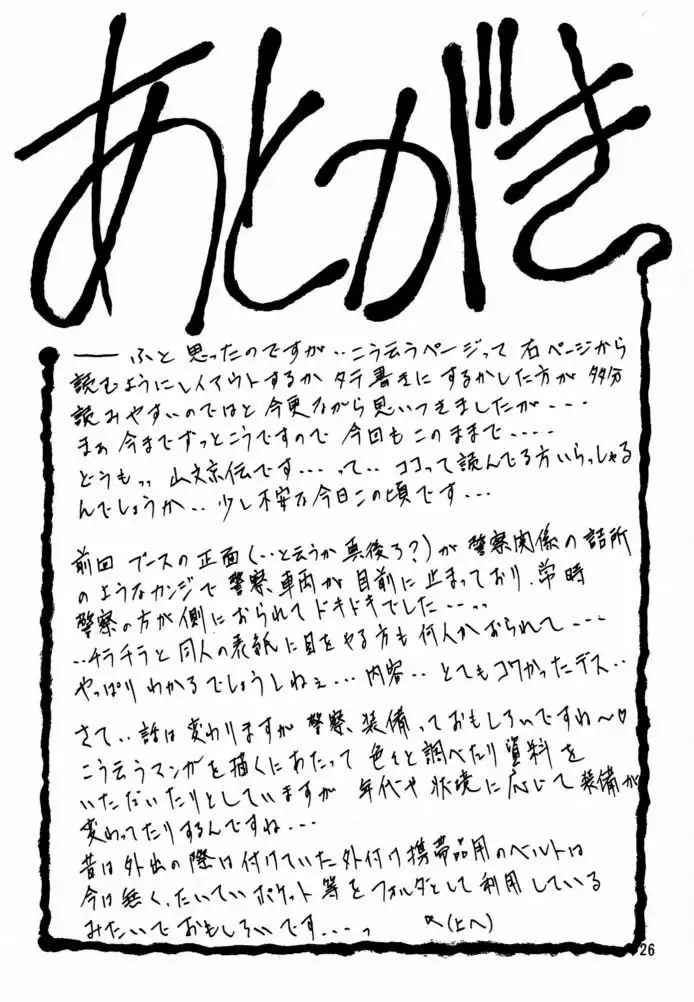 あとがき
── ふと思ったのですが‥こう云うページって右ページから
読むようにレイアウトするかタテ書きにするかした方が多分
読みやすいのではと今更ながら思いつきましたが---
まぁ今までずっとこうですので今回もこのままで-----
どうもっっ山文京伝です---って‥ココって読んでる方いらっしゃる
んでしょうか‥少し不安な今日この頃です---
前回ブースの正面(‥と云うか真後ろ?)が警察関係の詰所
のようなカンジで警察車両が目前に止まっており、常時
警察の方が側におられてドキドキでした---っっ
‥チラチラと同人の表紙に目をやる方も何人かおられて---
やっぱりわかるでしょうしねぇ---内容‥とてもコワかったデス‥
さて‥話は変わりますが警察装備っておもしろいですね〜♡
こう云うマンガを描くにあたって色々と調べたり資料を
いただいたりとしていますが年代や状況に応じて装備が
変わってたりするんですね---
昔は外出の際は付けていた外付け携帯品用のベルトは
今は無く、たいていポケット等をフォルダとして利用している
みたいでおもしろいです---っ (上へ)
26